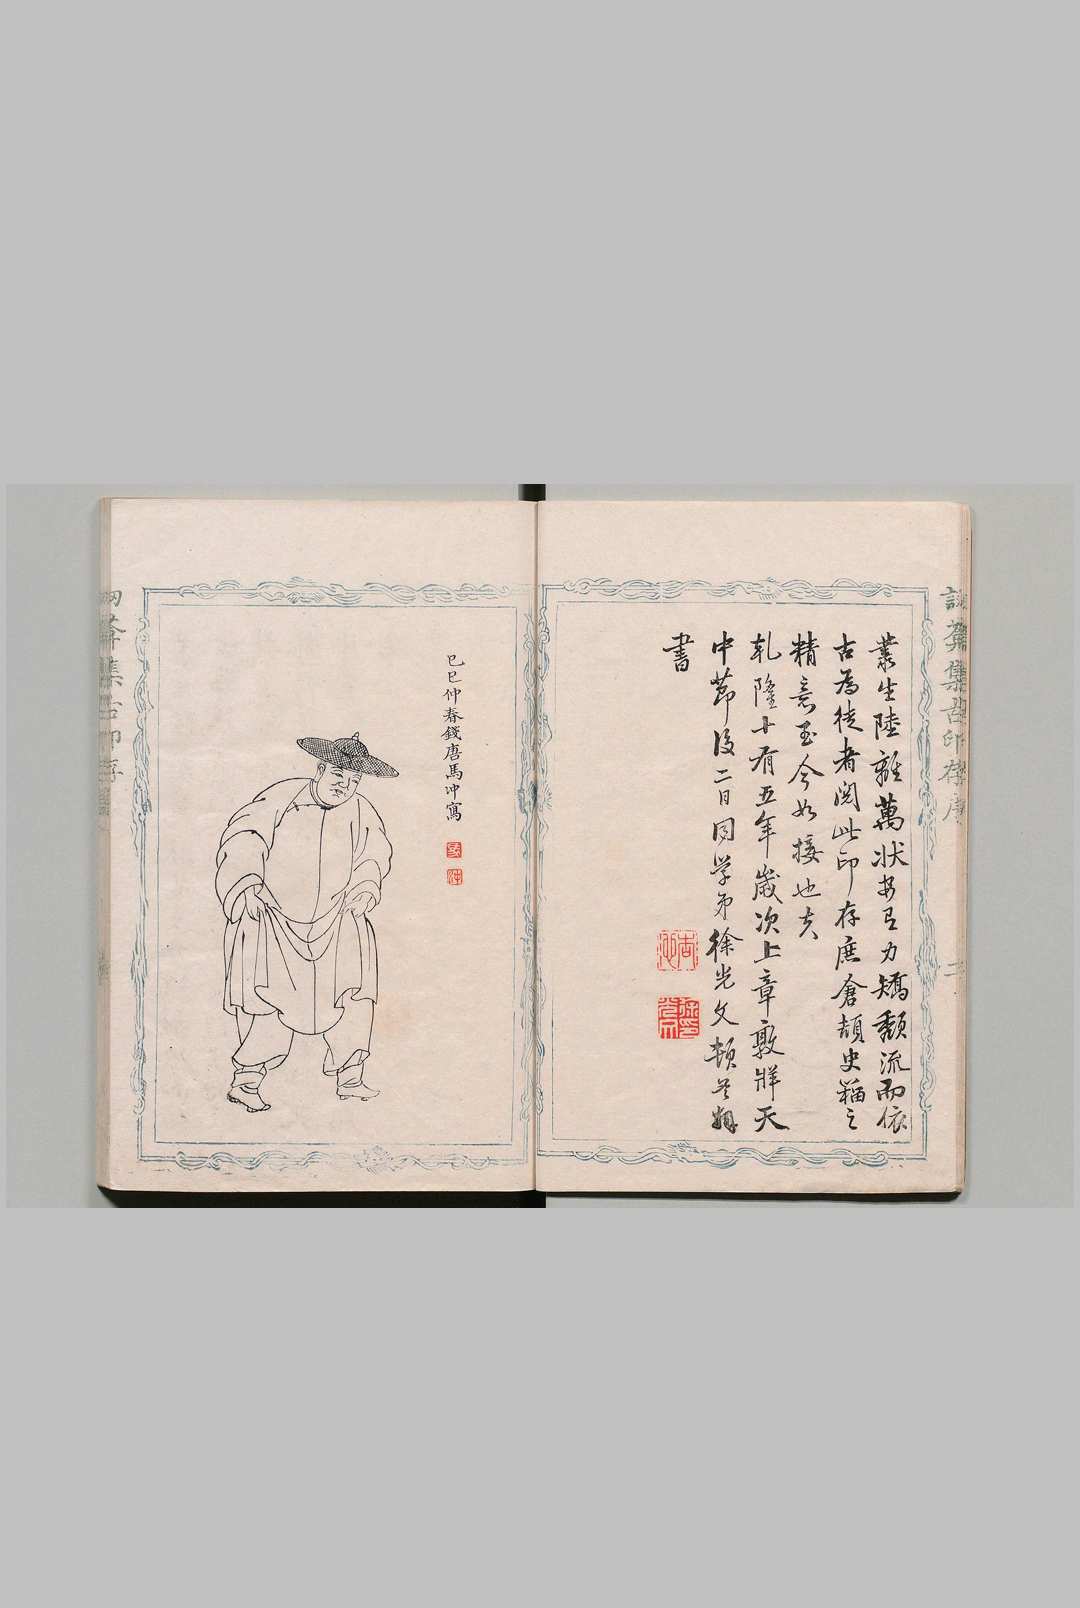 叢生陸離萬狀安百力矯頽流而依
古為徒者閱此印存庶倉頡史籀之
精意至今如接也夫
乾隆十有五年歲次上章敦牂天
中節後二日同學弟徐光文頓首拜
書
己巳仲春錢唐馬冲寫
集古印存